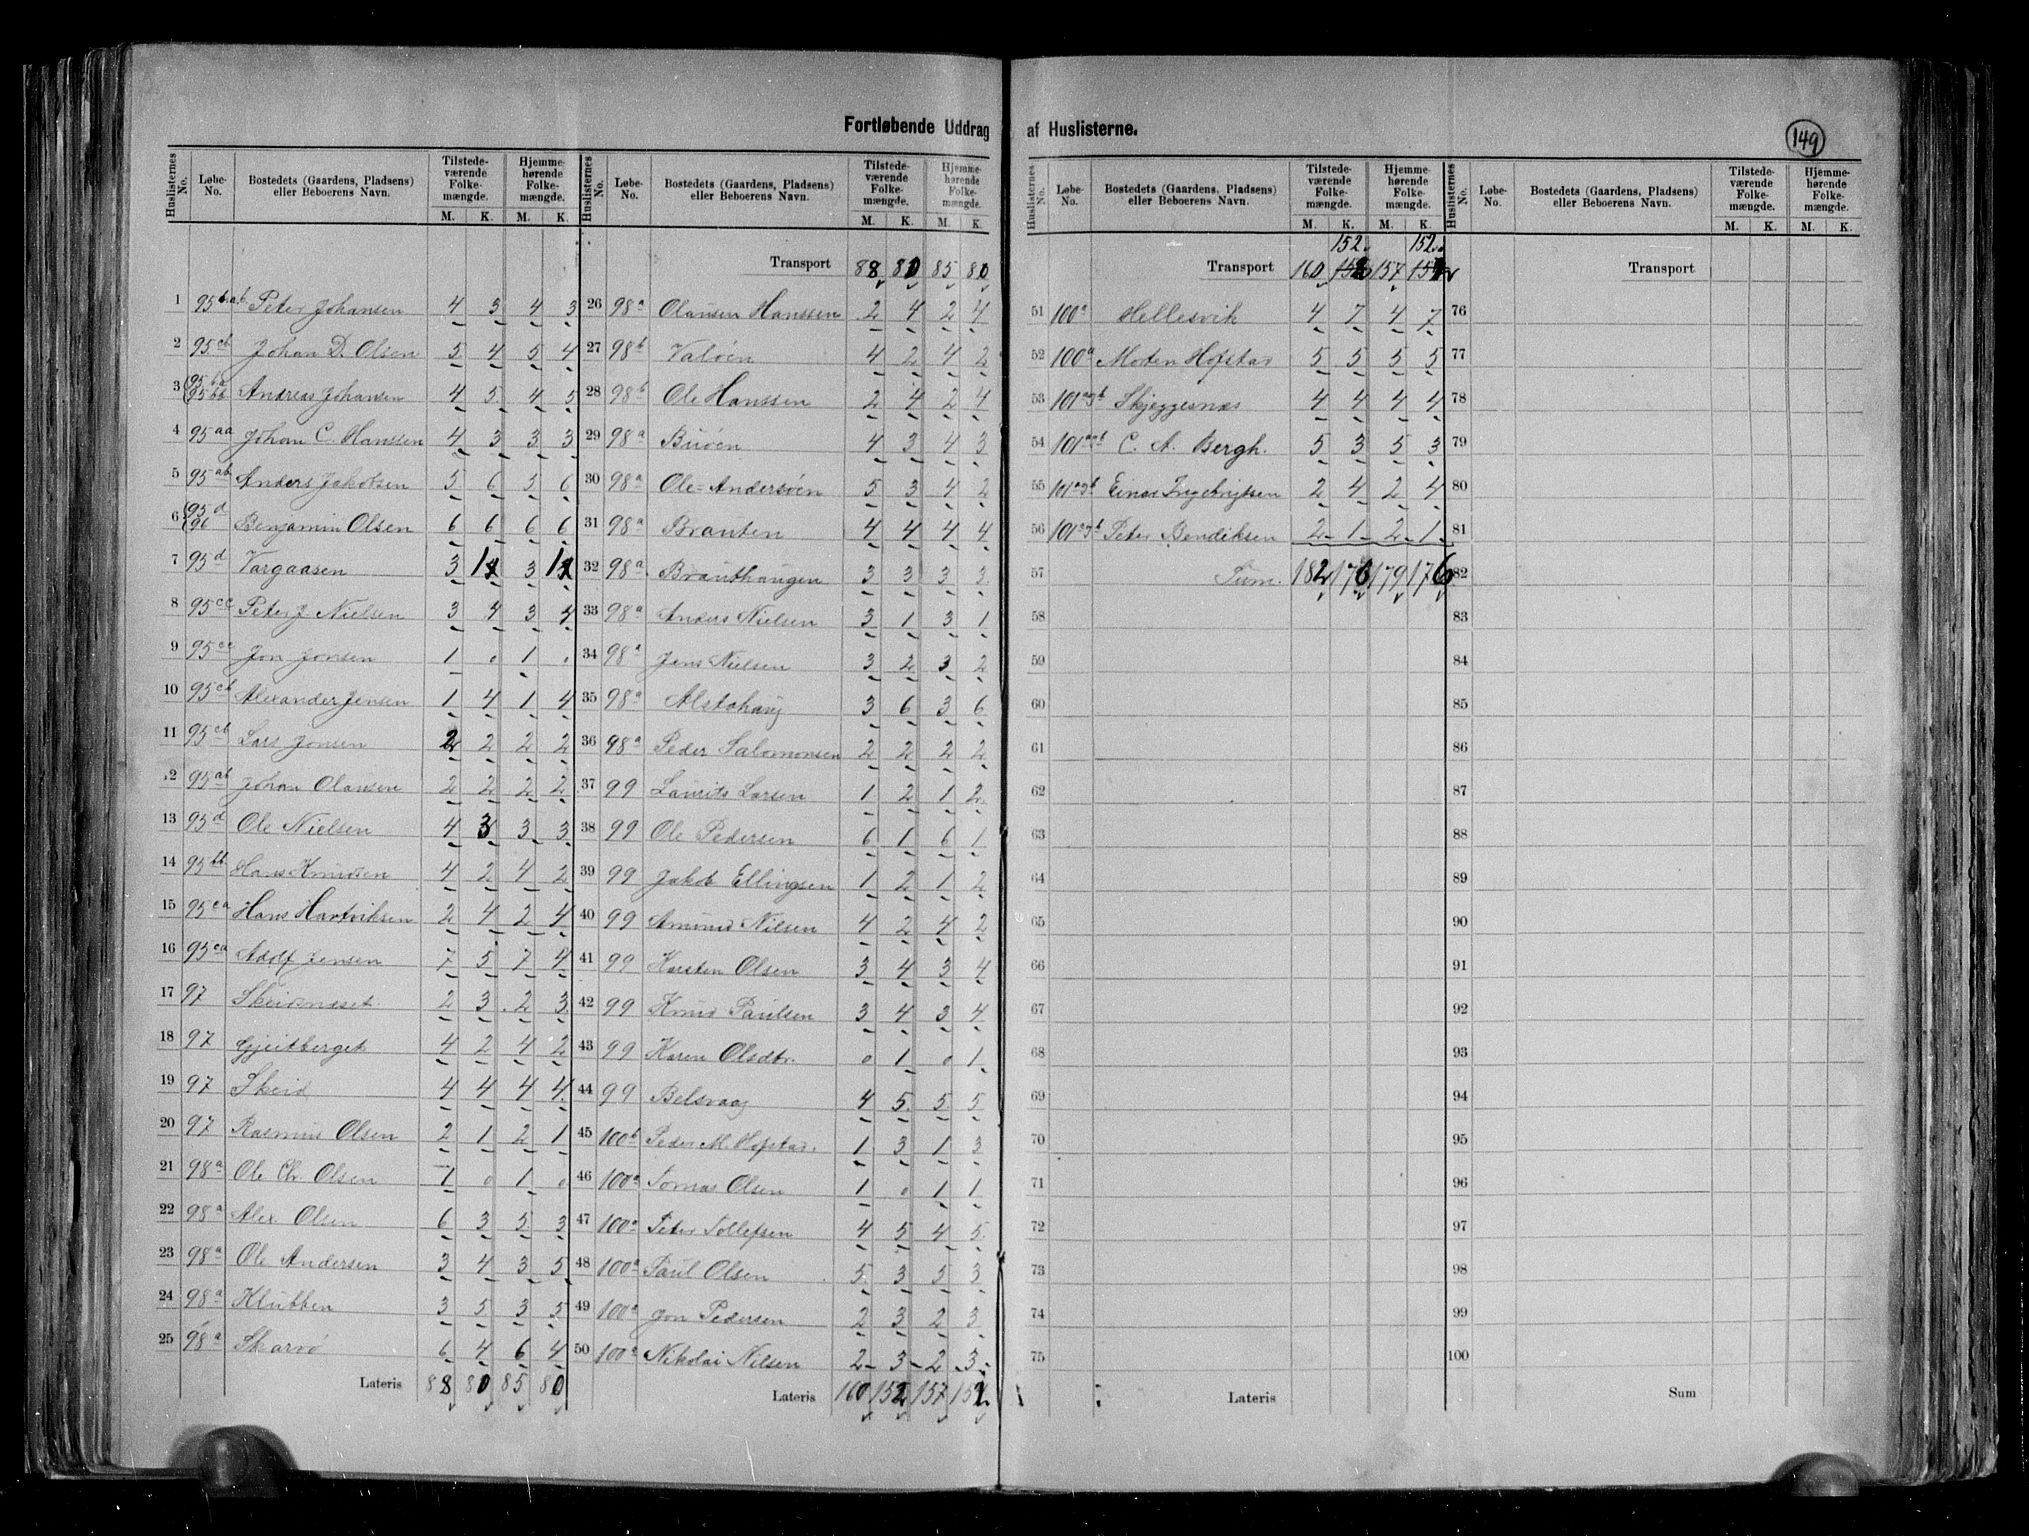 Fortløbende Uddrag af Huslisterne.
149
Huslisternes No. Løbe-No. Bostedets (Gaardens, Pladsens) eller Beboerens Navn. Tilstedeværende Folkemængde. M. K. Hjemmehørende Folkemængde. M. K.
1 Peter Johansen 4 3 4 3
2 95cb Johan D. Olsen 5 4 5 4
3 95ba 95bb Andreas Johansen 4 5 4 5
4 95aa Johan C. Hanssen 4 3 3 3
5 95ab Anders Jakobsen 5 6 5 6
6 95d 96 Benjamin Olsen 6 6 6 6
7 95d Vargaasen 3 1 3 1
8 95cc Peter J. Nielsen 3 4 3 4
9 95cc Jon Jonsen 1 0 1 0
10 95cb Alexander Jensen 1 4 1 4
11 95cb Lars Jonsen 2 2 2 2
12 95ab Johan Olausen 2 2 2 2
13 95d Ole Nielsen 4 3 3 3
14 95bb Hans Knudsen 4 2 4 2
15 95ca Hans Hartviksen 2 4 2 4
16 95ca Adolf Jensen 7 5 7 4
17 97 Skeidnæset 2 3 2 3
18 97 Gjeitberget 4 2 4 2
19 97 Skeid 4 4 4 4
20 97 Rasmus Olsen 2 1 2 1
21 98a Ole Chr. Olsen 1 0 1 0
22 98a Alex. Olsen 6 3 5 3
23 98a Ole Andersen 3 4 3 5
24 98a Klubben 3 5 3 5
25 98a Skarvø 6 4 6 4
Lateris 88 80 85 80
Huslisternes No. Løbe-No. Bostedets (Gaardens, Pladsens) eller Beboerens Navn. Tilstedeværende Folkemængde. M. K. Hjemmehørende Folkemængde. M. K.
Transport 88 80 85 80
26 98a Olausen Hanssen 2 4 2 4
27 98b Valøen 4 2 4 2
28 98b Ole Hanssen 2 4 2 4
29 98a Buøen 4 3 4 3
30 98a Ole-Andersøen 5 3 4 2
31 98a Brauten 4 4 4 4
32 98a Brauthaugen 3 3 3 3
33 98a Anders Nielsen 3 1 3 1
34 98a Jens Nielsen 3 2 3 2
35 98a Alstahaug 3 6 3 6
36 98a Peder Salomonsen 2 2 2 2
37 99 Laurits Larsen 1 2 1 2
38 99 Ole Pedersen 6 1 6 1
39 99 Jakob Ellingsen 1 2 1 2
40 99 Amund Nilsen 4 2 4 2
41 99 Karsten Olsen 3 4 3 4
42 99 Knud Paulsen 3 4 3 4
43 99 Karen Olsdtr. 0 1 0 1
44 99 Belsvaag 4 5 5 5
45 100b Peder M. Hofstad 1 3 1 3
46 100a Tomas Olsen 1 0 1 1
47 100a Peter Tollefsen 4 5 4 5
48 100a Paul Olsen 5 3 5 3
49 100a Jon Pedersen 2 3 2 3
50 100a Nikolai Nilsen 2 3 2 3
Lateris 160 152 157 152
Huslisternes No. Løbe-No. Bostedets (Gaardens, Pladsens) eller Beboerens Navn. Tilstedeværende Folkemængde. M. K. Hjemmehørende Folkemængde. M. K.
152 152
Transport 160 157
51 100a Hellesvik 4 7 4 7
52 100a Morten Hofstad 5 5 5 5
53 Skjeggesnæs 4 4 4 4
54 C. A. Bergh. 5 3 5 3
55 Einar Ingebrigtsen 2 4 2 4
56 Peter Bendiksen 2 1 2 1
57 Sum. 182 176 179 176
58
59
60
61
62
63
64
65
66
67
68
69
70
71
72
73
74
75
Lateris
Huslisternes No. Løbe-No. Bostedets (Gaardens, Pladsens) eller Beboerens Navn. Tilstedeværende Folkemængde. M. K. Hjemmehørende Folkemængde. M. K.
Transport
76
77
78
79
80
81
82
83
84
85
86
87
88
89
90
91
92
93
94
95
96
97
98
99
100
Sum